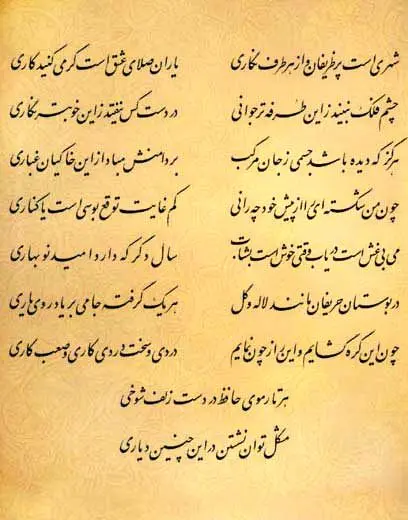 شهری است پرظریفان و از هر طرف نگاری یاران صلای عشق است گر می کنید کاری
چشم فلک نبیند زاین طرفه تر جوانی در دست کس نیفتد زاین خوبتر نگاری
هرگز که دیده باشد جسمی ز جان مرکب بر دامنش مبادا زاین خاکیان غباری
چون من شکسته ای را از پیش خود چه رانی کم غایت توقع بوسی است یا کناری
می بی غش است دریاب وقتی خوش است بشتاب سال دگر که دارد امید نوبهاری
در بوستان حریفان مانند لاله و گل هر یک گرفته جامی بر یاد روی یاری
چون این گره گشایم و این راز چون نمایم دردی و سخت دردی کاری و صعب کاری
هر تار موی حافظ در دست زلف شوخی
مشکل توان نشستن در این چنین دیاری